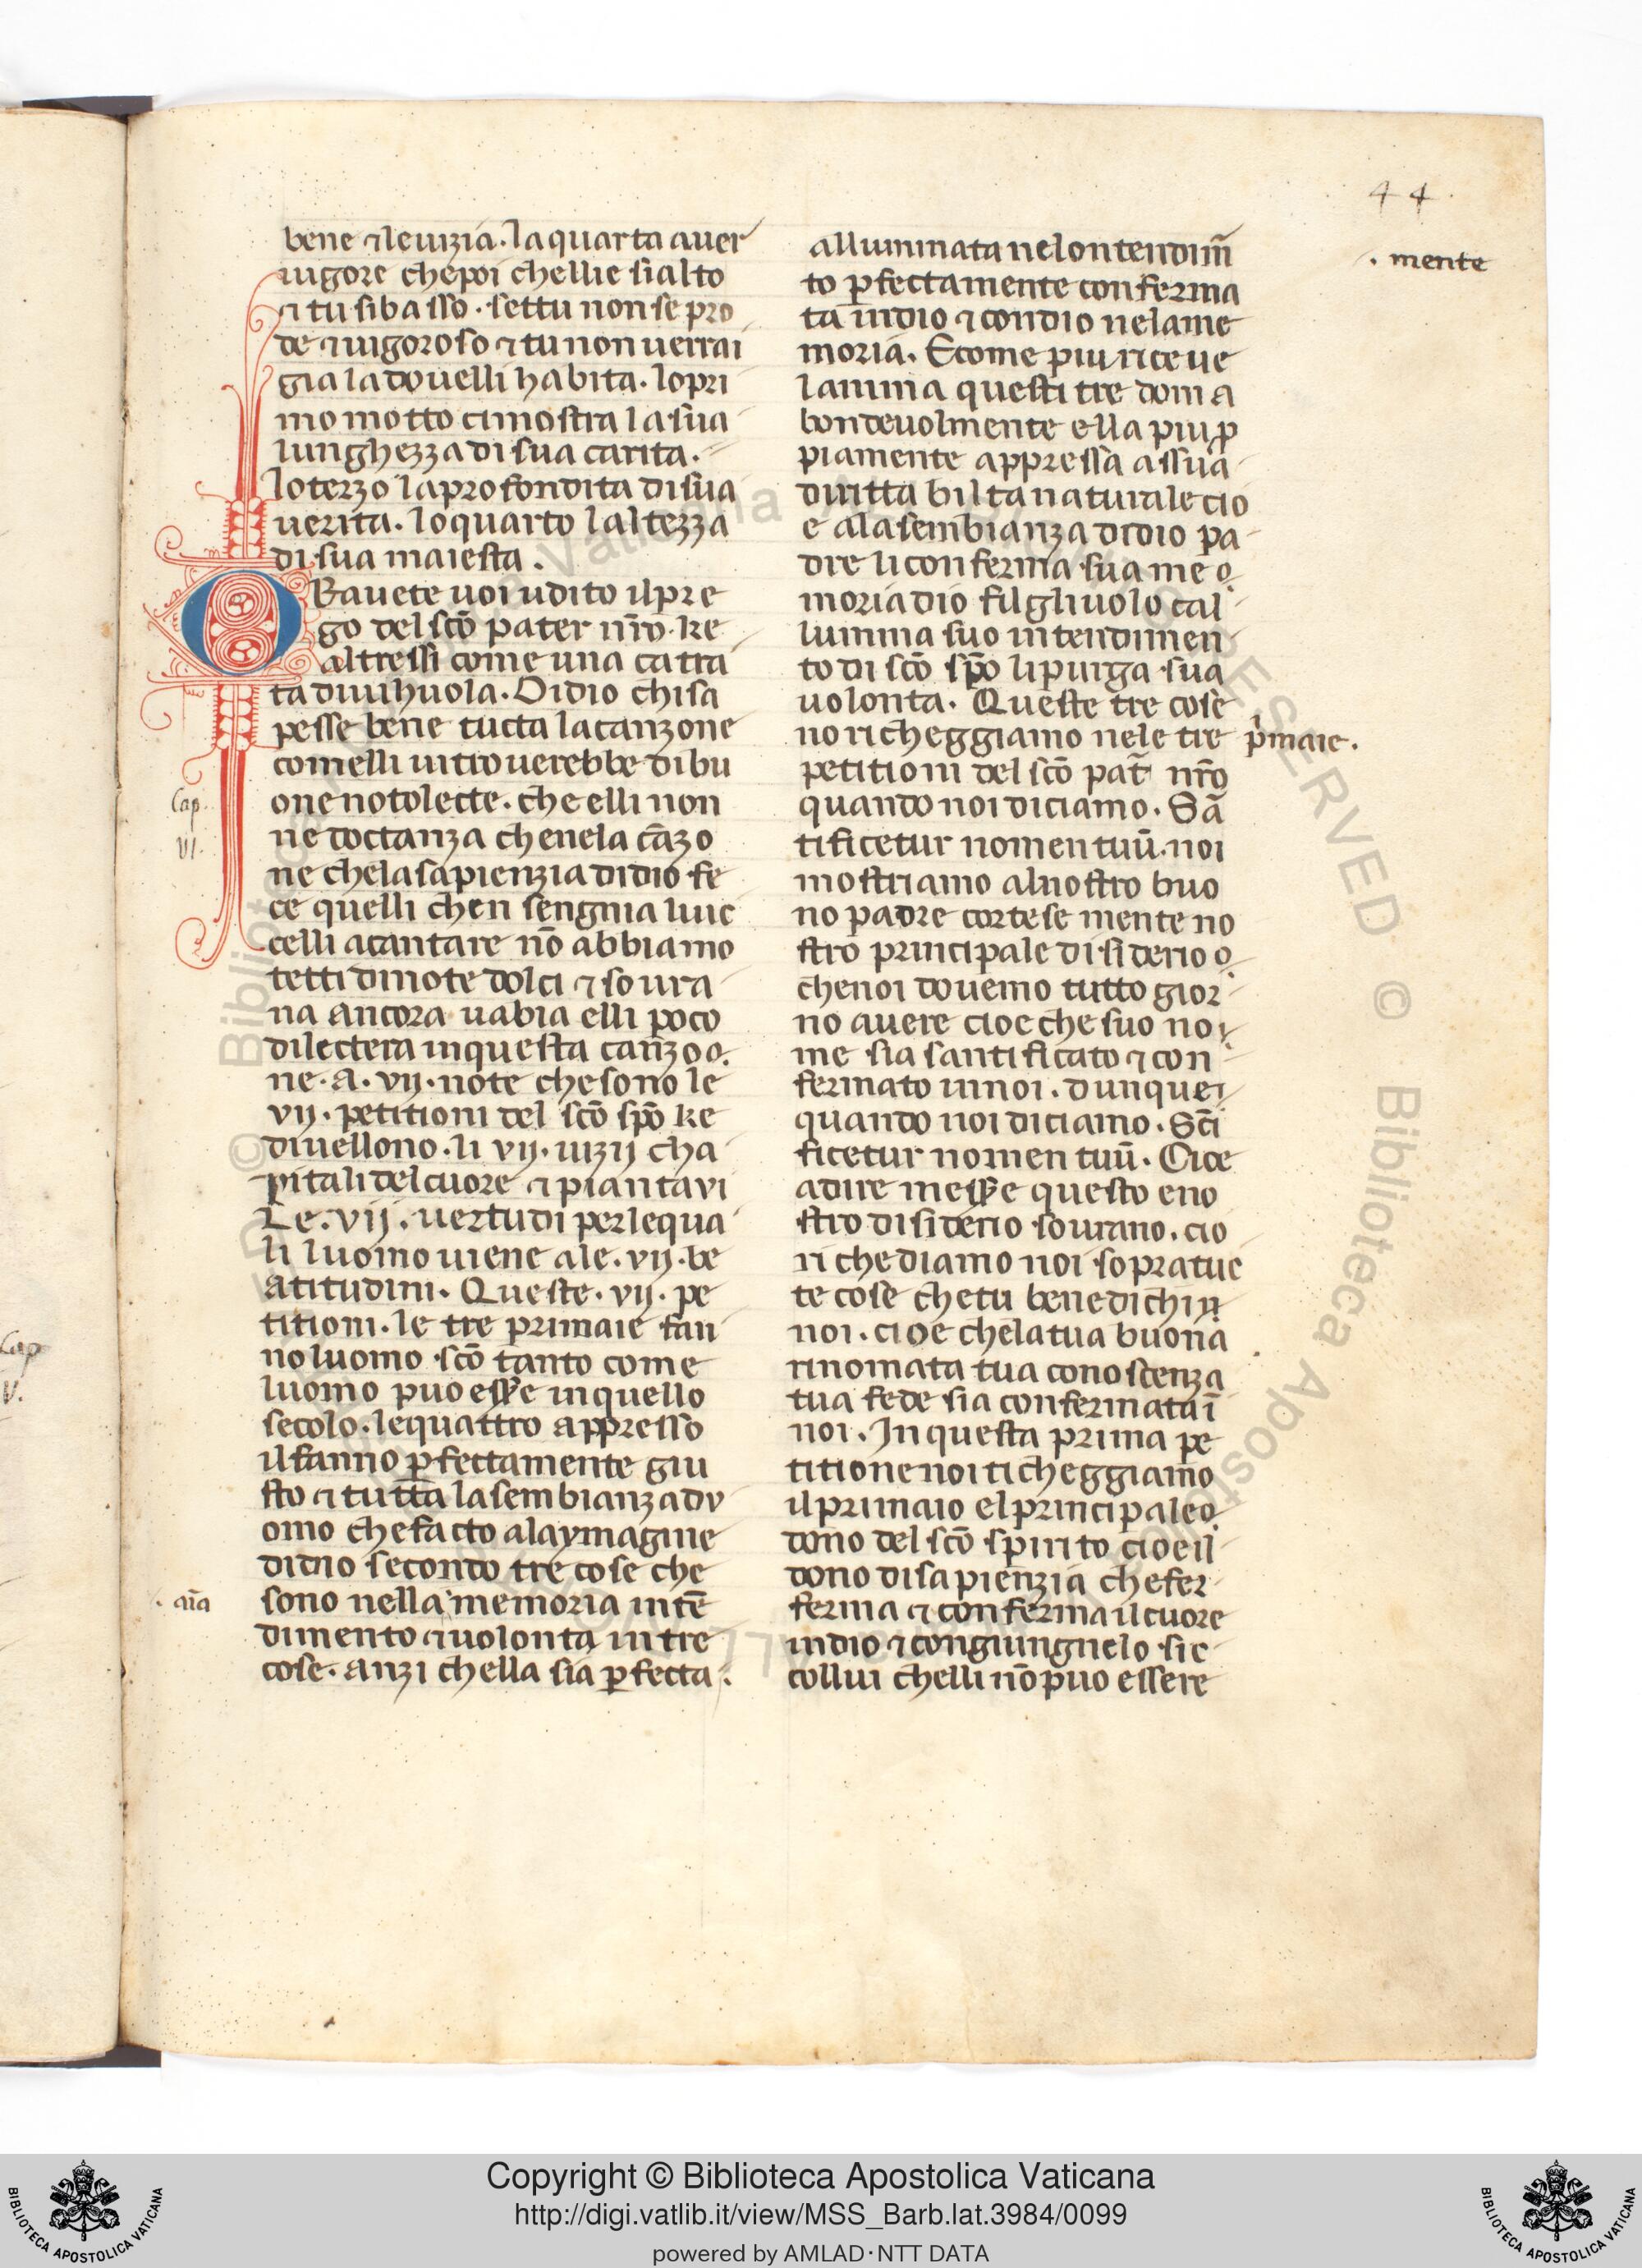 44
bene ⁊ leuizia. la quarta auer
uigore che poi chellie si alto
⁊ tu si basso. settu non se pro
de ⁊ uigoroso ⁊ tu non uerrai
gia la douelli habita. lo pri
mo motto ci mostra la sua
lunghezza di sua carita.
lo terzo la profondita di sua
uerita. lo quarto laltezza
di sua maiesta.
Oauete uoi udito il pre
go del sc̄o pater nr̄o. ke
altressi come una catra
ta di uihuola. Di dio chi sa
pesse bene tucta la canzone
comelli ui trouerebbe di bu
one note lecte. che elli non
ne doctanza che ne la cāzo
ne che la sapienzia di dio fe
ce quelli chen sengnia liuc
celli a cantare nō abbiamo
tetti di note dolci ⁊ soura
na ancora uabia elli poco
di lectera in questa canzo
ne. a. vij. note che sono le
vij. petitioni del sc̄o sp̄o ke
diuellono. li vij. uizij cha
pitali del cuore ⁊ piantaui
Le. vij. uertudi per lequa
li luomo uiene a le. vij. be
atitudini. Queste. vij. pe
titioni. le tre primaie fan
no luomo sc̄o tanto come
luomo puo ess̄e in quello
secolo. le quattro appresso
il fanno ꝑfectamente giu
sto ⁊ tutta la sembianza du
omo che facto a la ymagine
di dio secondo tre cose che
sono nella memoria intē
dimento ⁊ uolonta in tre
cose. anzi chella sia ꝑfecta.
Cap.
VI.
. aīa
alluminata nelontendim̄
to ꝑfectamente conferma
ta in dio ⁊ con dio ne la me
moria. E come piu riceue
lanima questi tre doni a
bondeuolmente ella piu ꝓ
piamente appressa a ssua
diritta bilta naturale cio
e a la sembianza di dio pa
dre li conferma sua me
moria dio filgliuolo eal
lumina suo intendimen
to di sc̄o sp̄o li purga sua
uolonta. Queste tre cose
no richeggiamo ne le tre
petitioni del sc̄o pat̄ nr̄o
quando noi diciamo. Sā
tificetur nomen tuū. noi
mostriamo al nostro buo
no padre cortese mente no
stro principale disiderio
che noi douemo tutto gior
no auere cioe che suo no
me sia santificato ⁊ con
fermato in noi. dunque
quando noi diciamo. Sc̄i
ficetur nomen tuū. Cioe
a dire mess̄e questo e no
stro disiderio sourano. cio
ri chediamo noi sopra tuc
te cose che tu benedichi in
noi. cioe che la tua buona
rinomata tua conoscenza
tua fede sia confermata ī
noi. In questa prima pe
titione noi richeggiamo
il primaio el principale
dono del sc̄o spirito cioe il
dono di sapienzia che fer
ferma ⁊ conferma il cuore
in dio ⁊ congiungnelo sie
collui chelli nō puo essere
. mente
p̄maie.
Cap
V.
Copyright © Biblioteca Apostolica Vaticana
http://digi.vatlib.it/view/MSS_Barb.lat.3984/0099
powered by AMLAD·NTT DATA
BIBLIOTECA APOSTOLICA VATICANA
BIBLIOTECA APOSTOLICA VATICANA